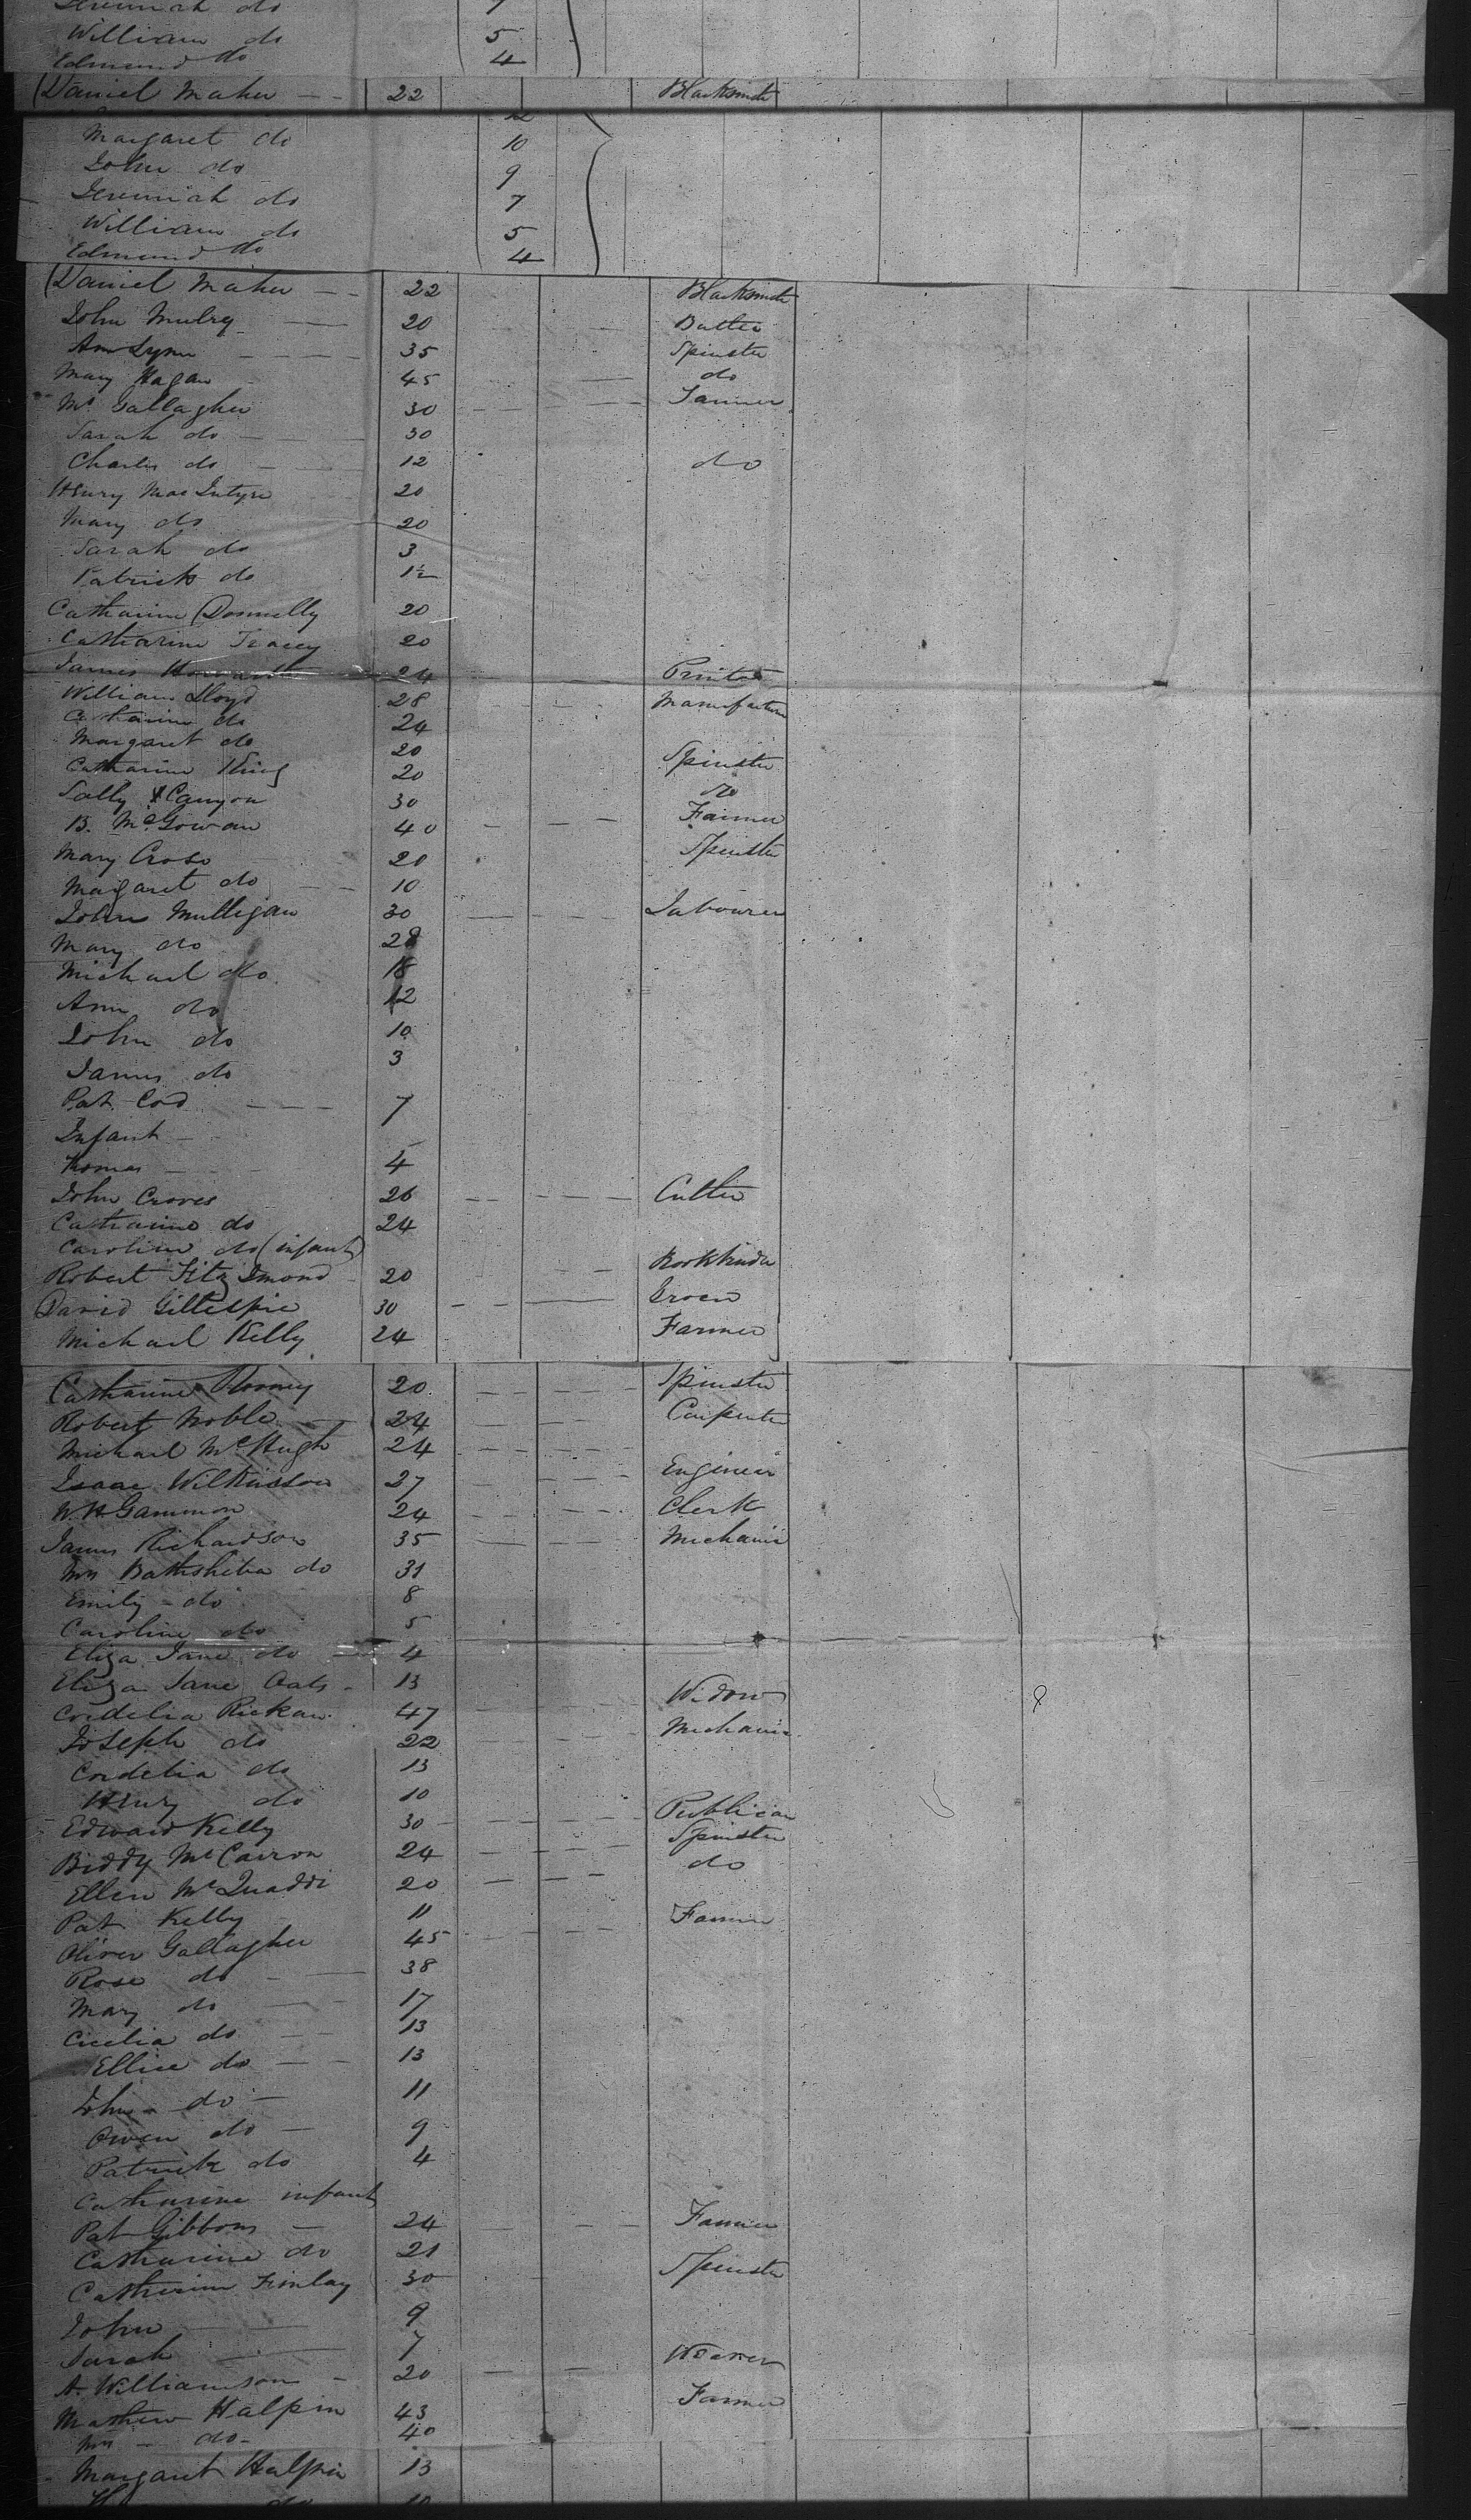 Jeremiah do 7
William do 5
Edmund do 4
Daniel Maher 22 Blacksmith
12
Margaret do 10
John do 9
Jeremiah do 7
William do 5
Edmund do 4
Daniel Maher 22 Blacksmith
John Mulry 20 Butler
Ann Lynn 35 Spinster
Mary Hagan 45 do
Mr Gallagher 30 Farmer
Sarah do 30
Charles do 12 do
Henry MacIntyre 20
Mary do 20
Sarah do 3
Patrick do 1½
Catharine Donnelly 20
Catharine Tracey 20
James 24 Printer
William Lloyd 28 Manufacturer
Catharine do 24
Margaret do 20
Catharine King 20 Spinster
Sally Canyon 30 do
B. McGowan 40 Farmer
Mary Cross 20 Spinster
Margaret do 10
John Mulligan 30 Labourer
Mary do 28
Michael do 18
Ann do 12
John do 10
James do 3
Pat 7
Infant
Thomas 4
John Croves 26 Cutler
Catharine do 24
Caroline do (infant)
Robert Fitz Simond 20 Bookbinder
David Gillespie 30 Grocer
Michael Kelly 24 Farmer
Catharine Rooney 20 Spinster
Robert Noble 24 Carpenter
Michael McHugh 24
Isaac Wilkinson 27 Engineer
W. H Gammon 24 Clerk
James Richardson 35 Mechanic
Mrs Bathsheba do 31
Emily do 8
Caroline do 5
Eliza Jane do 4
Eliza Jane Oats 13
Cordelia Rickan 47 Widow
Joseph do 22 Mechanic
Cordelia do 13
Henry do 10
Edward Kelly 30 Publican
Biddy McCarron 24 Spinster
Ellen McQuaddi 20 do
Pat Kelly 11
Oliver Gallagher 45 Farmer
Rose do 38
Mary do 17
Cicelia do 13
Ellice do 13
John do 11
Owen do 9
Patrick do 4
Catharine infant
Pat Gibbons 24 Farmer
Catharine do 21
Catherine Finlay 30 Spinster
John 9
Sarah 7
A. Williamson 20 Weaver
Mathew Halpin 43 Farmer
Mrs do 40
Margaret Halpin 13
do 10